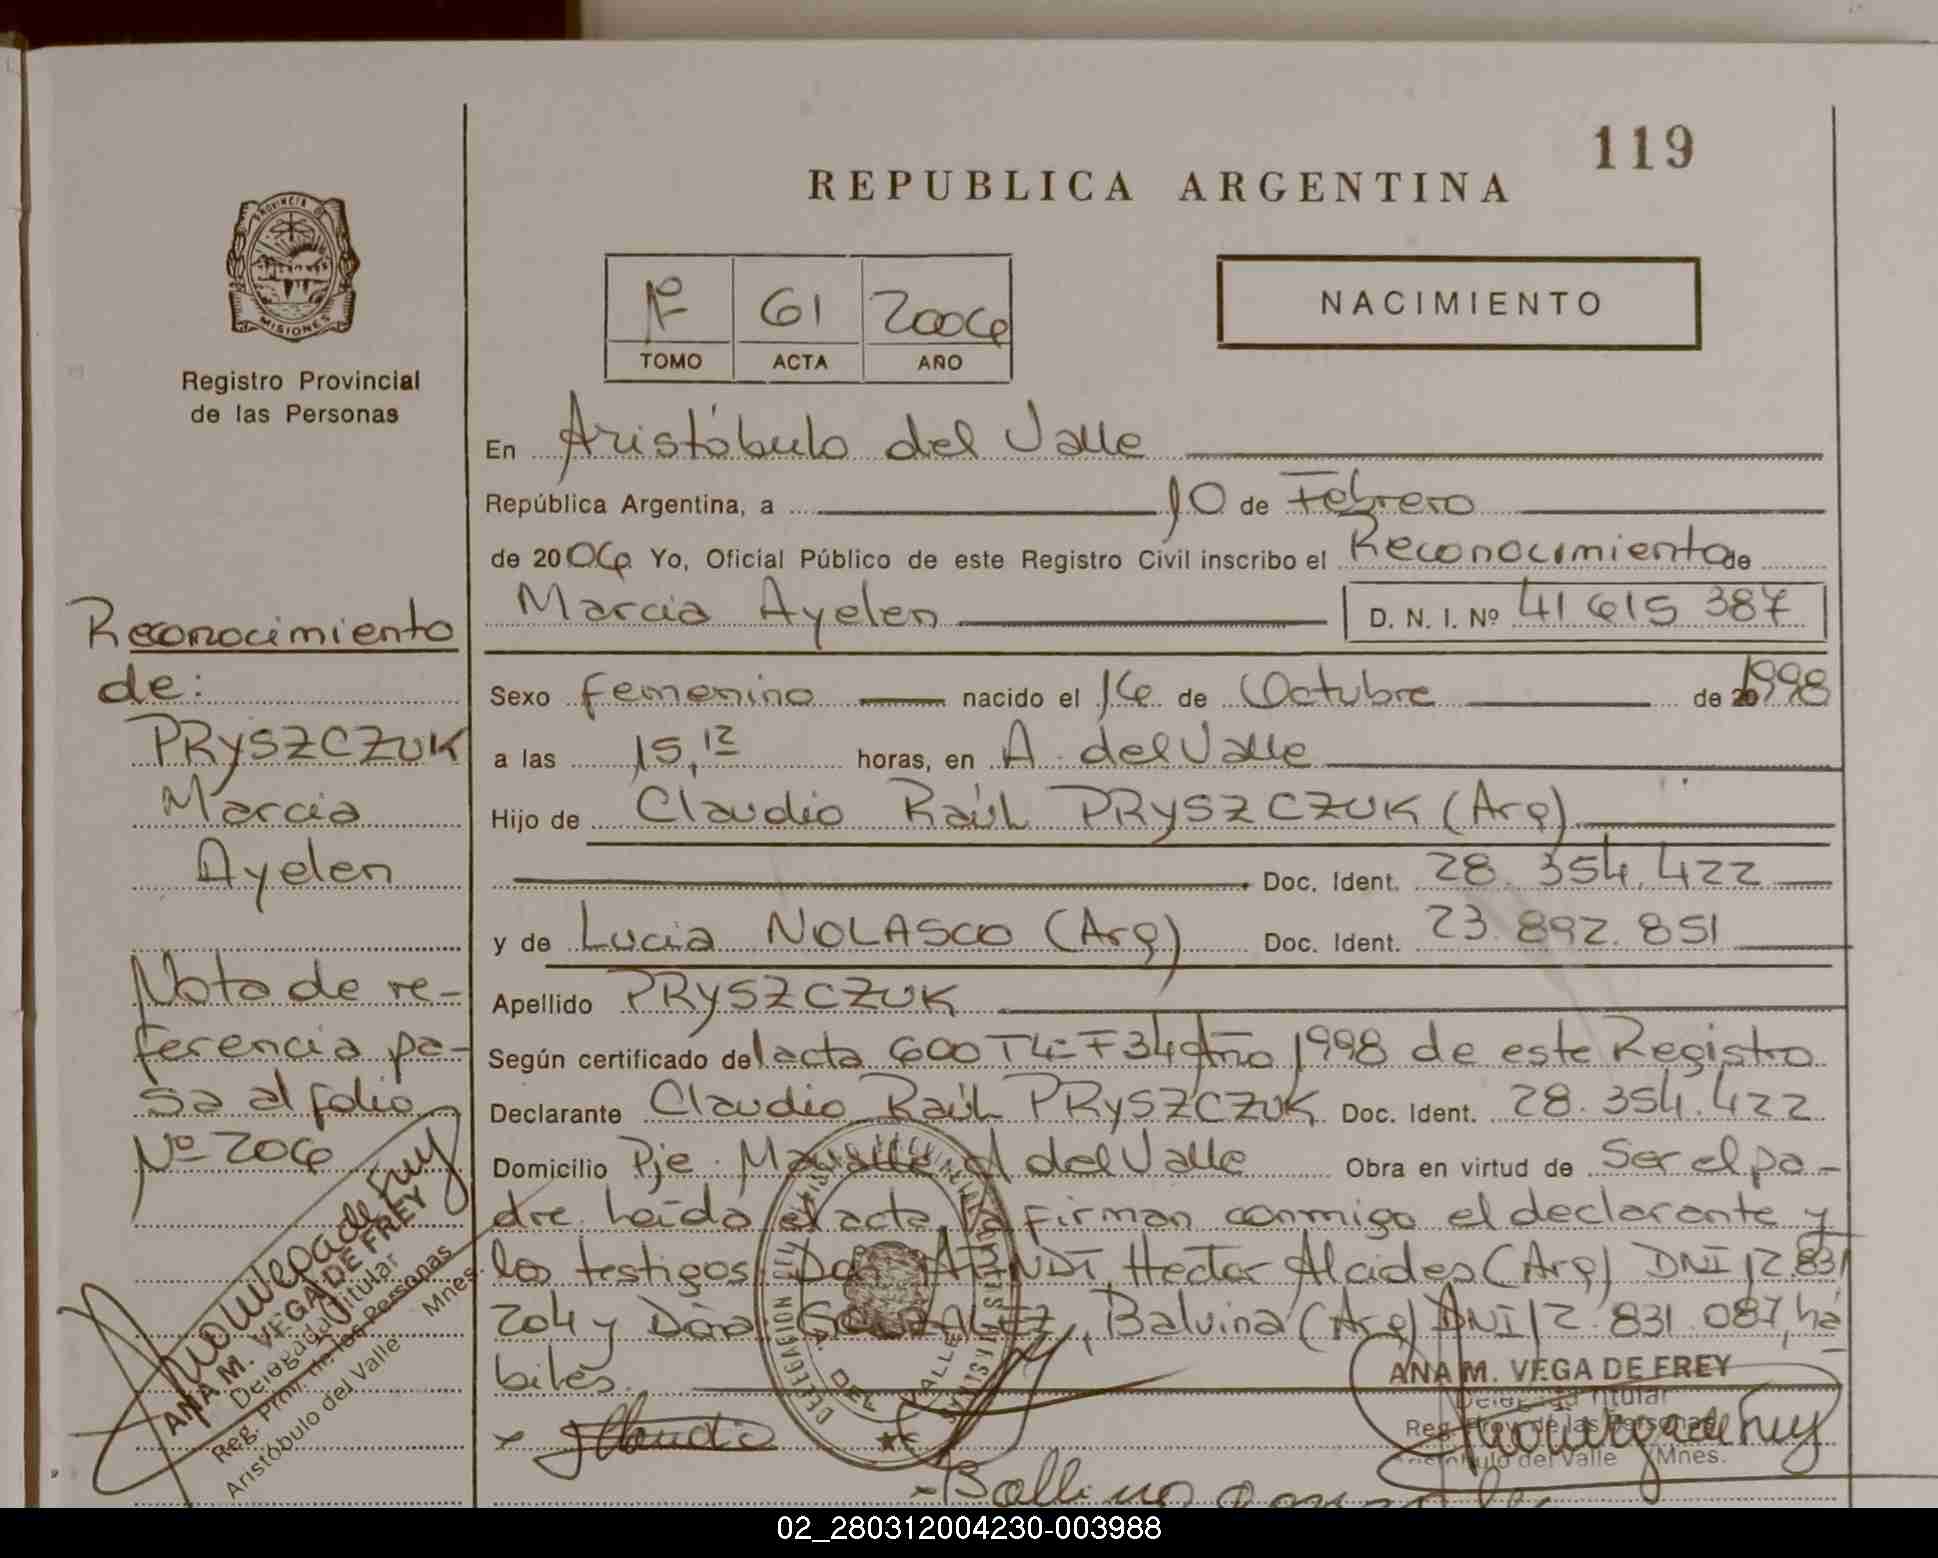 119
REPUBLICA ARGENTINA
PROVINCIA DE
MISIONES
Registro Provincial
de las Personas
61 2006
TOMO ACTA AÑO
NACIMIENTO
En Aristóbulo del Valle
República Argentina, a 10 de Febrero
de 2006 Yo, Oficial Público de este Registro Civil inscribo el Reconocimiento de
Marcia Ayelen D. N. I. Nº 41 615 387
Sexo femenino nacido el 16 de Octubre de 1998
a las 15,12 horas, en A. del Valle
Hijo de Claudio Raúl PRYSZCZUK (Arg)
Doc. Ident. 28.354.422
y de Lucia NOLASCO (Arg) Doc. Ident. 23.892.851
Apellido PRYSZCZUK
Según certificado del acta 600 T4=F 34 Año 1998 de este Registro
Declarante Claudio Raúl PRYSZCZUK Doc. Ident. 28.354.422
Domicilio Pje. A del Valle Obra en virtud de Ser el pa-
dre. Leída el acta, la firman conmigo el declarante y
los testigos Don ARNDT, Hector Alcides (Arg) DNI 12.831
204 y Doña GONZALEZ, Balvina (Arg) DNI 12.831.087, há-
biles.
Reconocimiento
de:
PRYSZCZUK
Marcia
Ayelen
Nota de re-
ferencia pa-
sa al folio
Nº 206
ANA M. VEGA DE FREY
Delegada Titular
Reg. Prov. de las Personas
Aristóbulo del Valle Mnes.
DELEGACION DEL
DEL VALLE
x Claudio
ANA M. VEGA DE FREY
Delegada Titular
Reg. Prov. de las Personas
Aristóbulo del Valle Mnes.
02_280312004230-003988